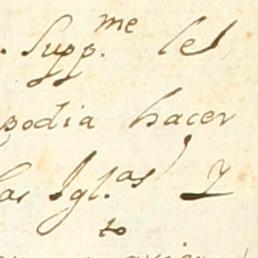 Supp.me les
podia hacer
las Igl.as y
to